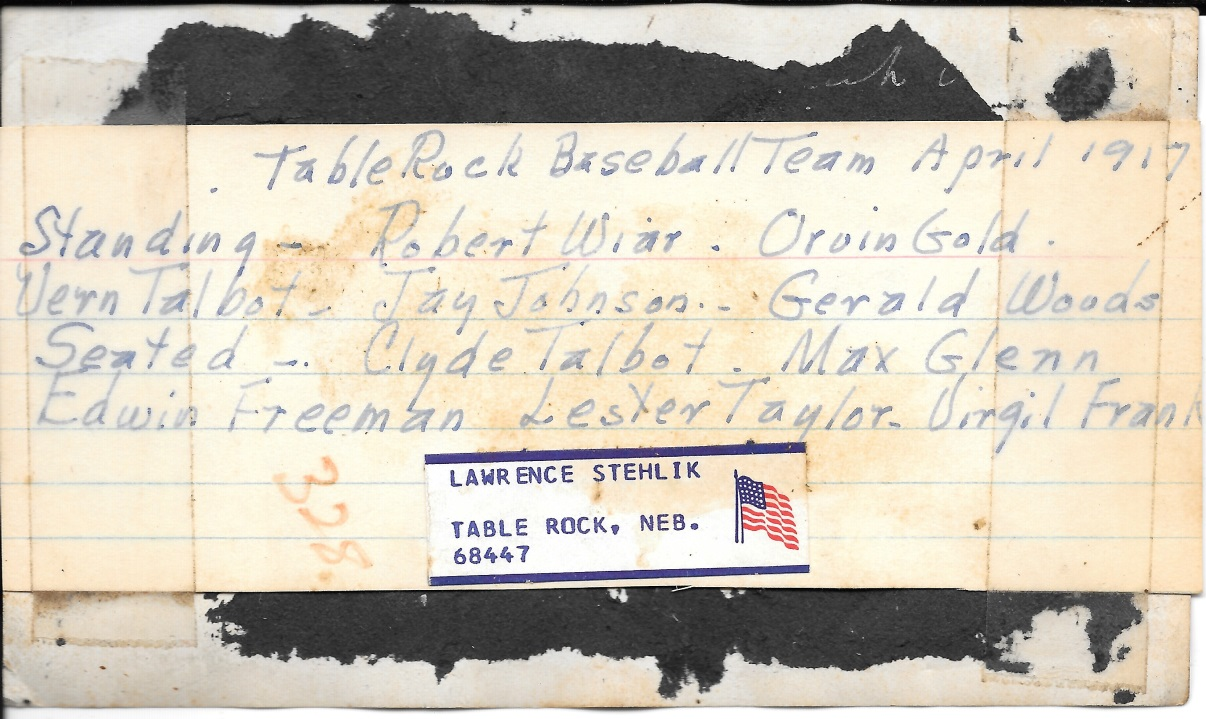 Table Rock Baseball Team April 1917
Standing - Robert Wiar. Orvin Gold.
Vern Talbot - Jay Johnson. - Gerald Woods
Seated - . Clyde Talbot. Max Glenn
Edwin Freeman Lester Taylor - Virgil Frank
328.
LAWRENCE STEHLIK
TABLE ROCK, NEB.
68447